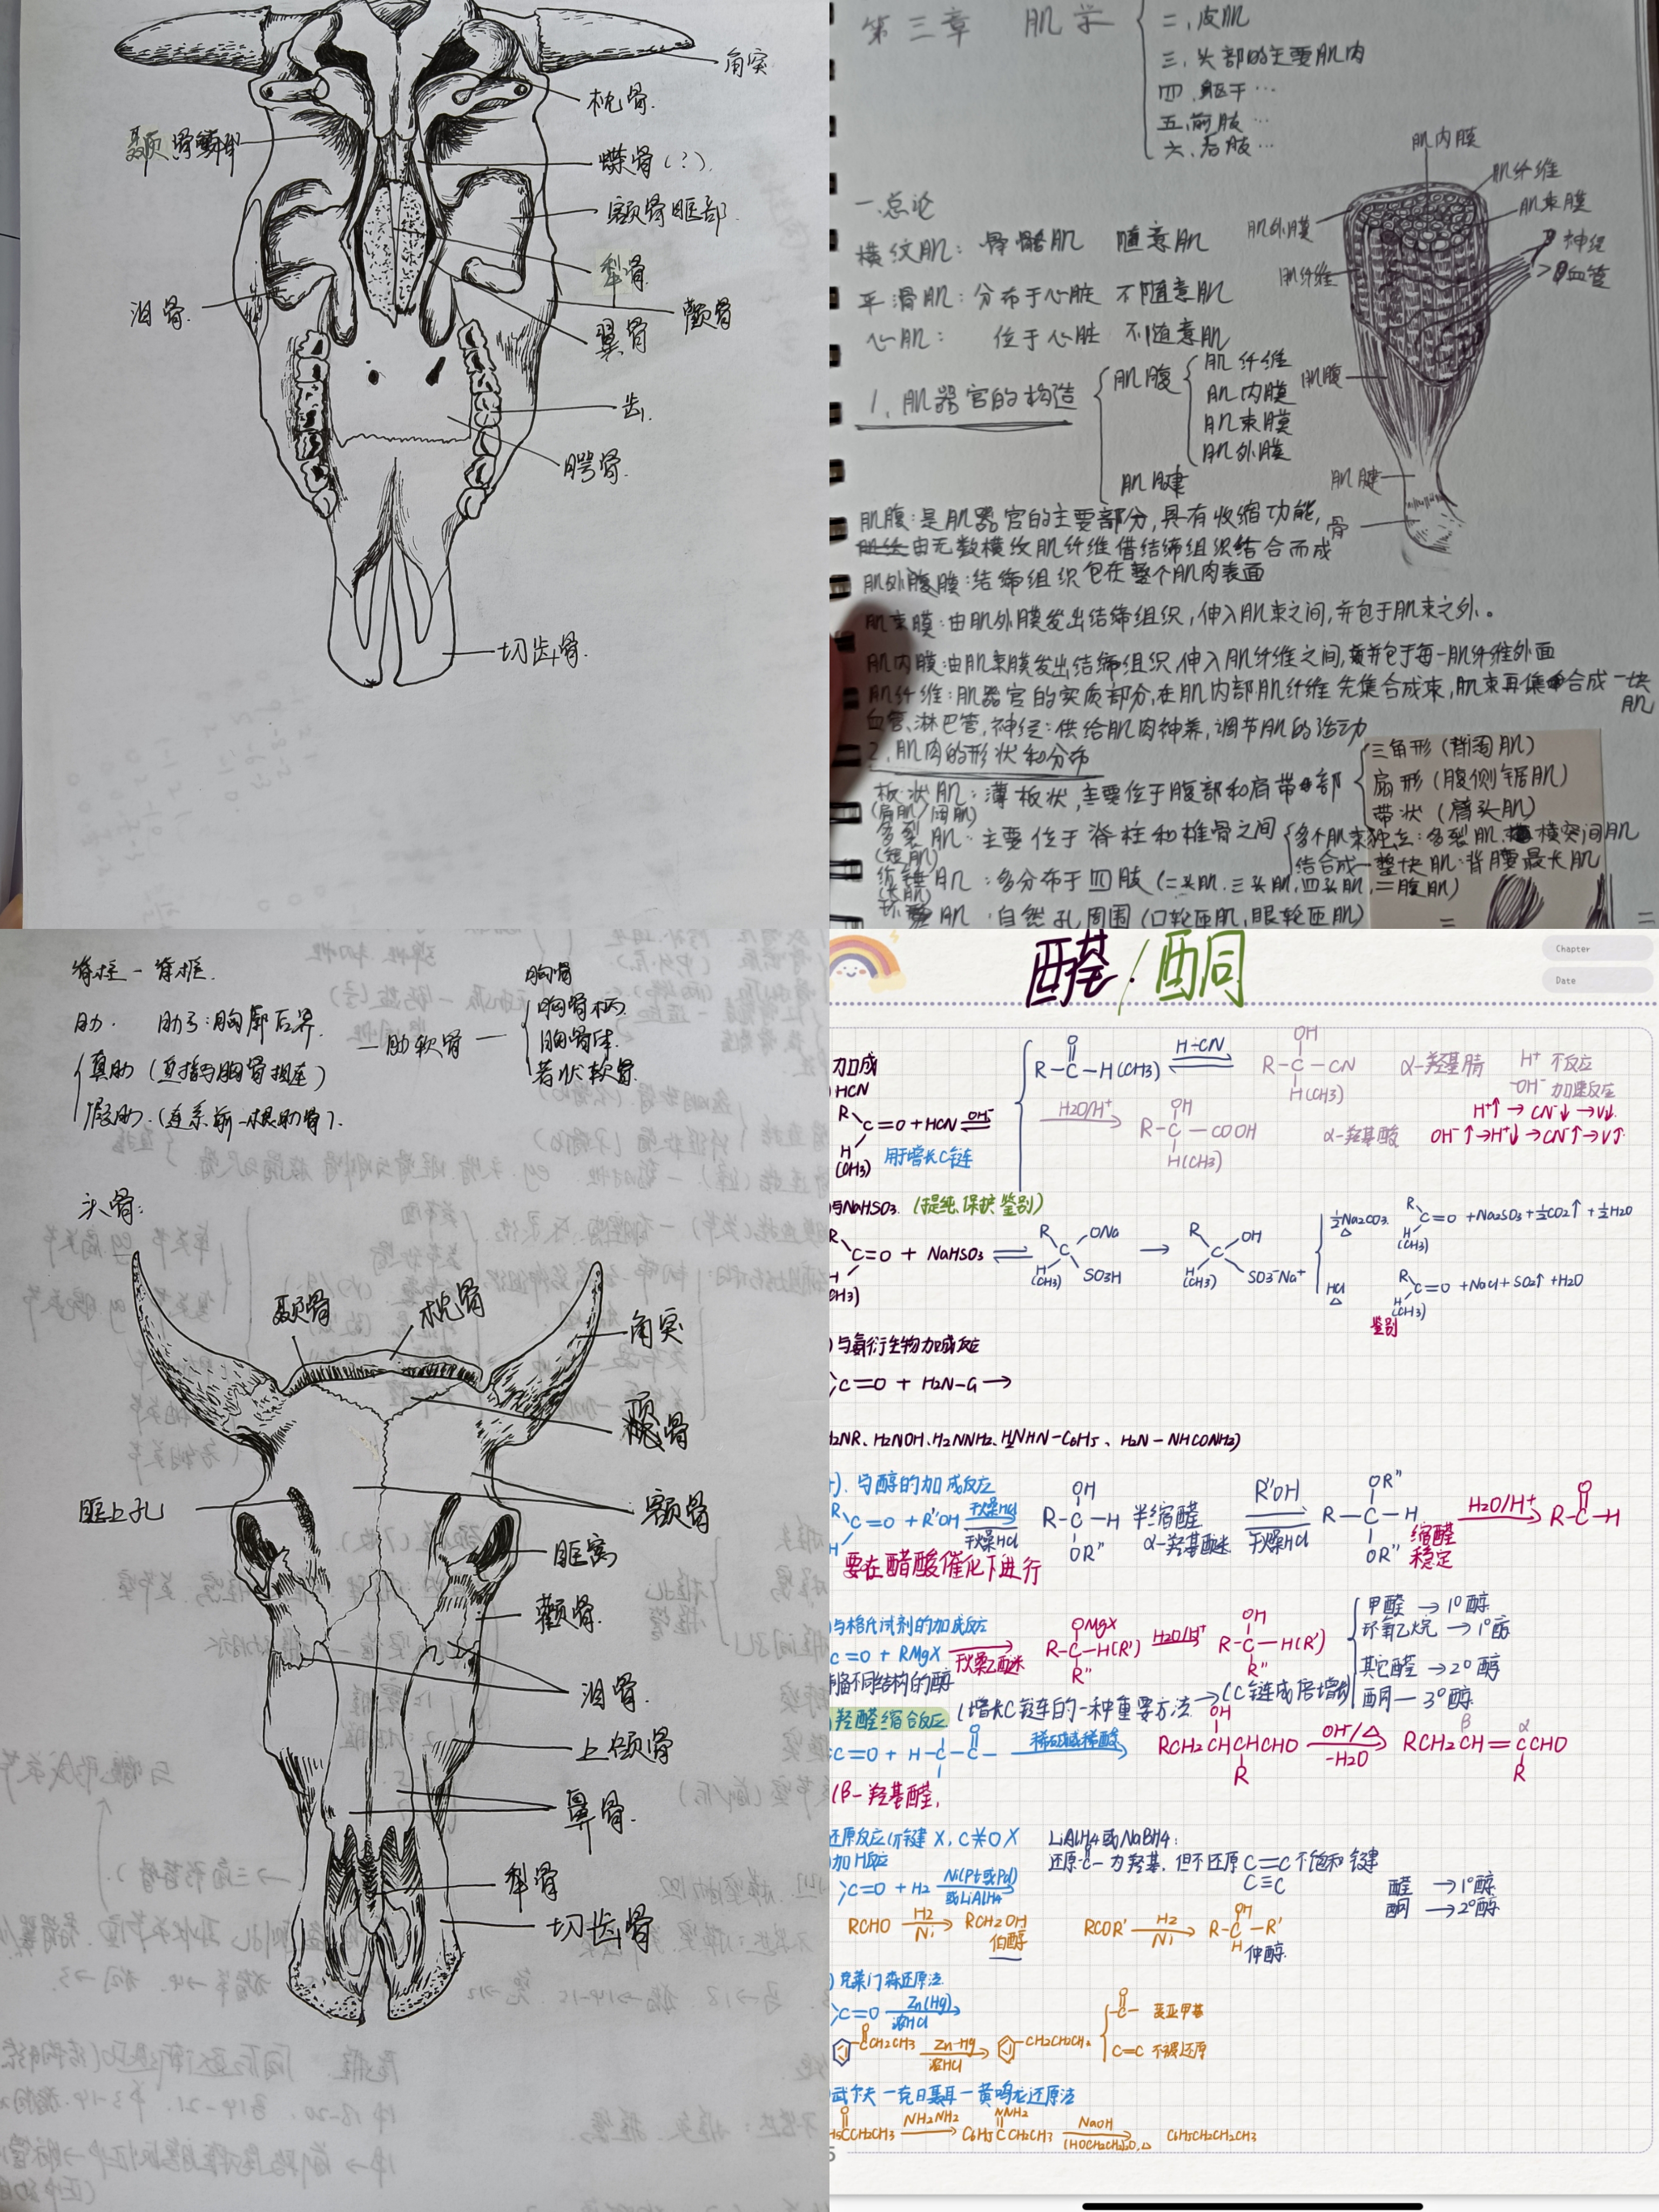 角突
枕骨.
颞骨鳞部
蝶骨(?).
额骨眶部.
犁骨
泪骨.
颧骨
翼骨
齿.
腭骨.
切齿骨.
第三章 肌学
二、皮肌
三、头部的主要肌肉
四、躯干…
五、前肢…
六、后肢…
一.总论
横纹肌: 骨骼肌 随意肌
平滑肌: 分布于心脏 不随意肌
心肌: 位于心脏 不随意肌
1、肌器官的构造
肌腹
肌纤维
肌内膜
肌束膜
肌外膜
肌腱
肌内膜
肌纤维
肌束膜
肌外膜
神经
血管
肌纤维
肌腹
肌腱
骨
肌腹:是肌器官的主要部分,具有收缩功能,
由无数横纹肌纤维借结缔组织结合而成
肌外膜:结缔组织包在整个肌肉表面
肌束膜:由肌外膜发出结缔组织,伸入肌束之间,并包于肌束之外。
肌内膜:由肌束膜发出结缔组织,伸入肌纤维之间,并包于每一肌纤维外面
肌纤维:肌器官的实质部分,在肌内部肌纤维先集合成束,肌束再集合成一块肌
血管、淋巴管,神经:供给肌肉神养,调节肌的活动
2.肌肉的形状和分布
板状肌:薄板状,主要位于腹部和肩带部
(扁肌/阔肌)
三角形(背阔肌)
扇形(腹侧锯肌)
带状(臂头肌)
多裂肌:主要位于脊柱和椎骨之间
(短肌)
多个肌束独立:多裂肌.横突间肌
结合成一整块肌:背腰最长肌
纺锤肌:多分布于四肢(二头肌.三头肌,四头肌,二腹肌)
(长肌)
环形肌:自然孔周围(口轮匝肌,眼轮匝肌)
脊柱-脊椎.
肋. 肋弓:胸廓后界.
真肋(直接与胸骨相连)
假肋.(连系前一根肋骨).
—肋软骨—
胸骨
胸骨柄.
胸骨体.
剑状软骨.
头骨:
颞骨
枕骨
角突
顶骨
额骨
眶上孔
眶窝
颧骨.
泪骨.
上颌骨
鼻骨.
犁骨
切齿骨
醛/酮
Chapter
Date
加成
HCN
R-C-H(CH3) H-CN R-C-CN α-羟基腈 H+ 不反应
OH- 加速反应
C=O+HCN OH-
H2O/H+ R-C-COOH α-羟基酸
H+↑→CN-↓→V↓.
OH-↑→H+↓→CN-↑→V↑.
用于增长C链
与NaHSO3.(提纯.保护.鉴别)
C=O + NaHSO3 ⇌ ONa SO3H → OH SO3-Na+
½Na2CO3 △ C=O +Na2SO3+½CO2↑+½H2O
HCl △ C=O +NaCl+SO2↑+H2O
鉴别
与氨衍生物加成反应
C=O + H2N-G→
H2NR、H2NOH、H2NNH2、H2NHN-C6H5、H2N-NHCONH2)
与醇的加成反应
C=O+R'OH 干燥HCl R-C-H 半缩醛 R''OH 干燥HCl R-C-H 缩醛 稳定 H2O/H+ R-C-H
α-羟基醚
要在醋酸催化下进行
与格氏试剂的加成反应
C=O+RMgX 干燥乙醚 R-C-H(R') H2O/H+ R-C-H(R')
制备不同结构的醇
甲醛→1°醇
环氧乙烷→1°醇
其它醛→2°醇
酮—3°醇
羟醛缩合反应.(增长C链的一种重要方法→(C链成倍增加)
C=O + H-C-C- 稀碱或稀酸 RCH2CHCHCHO OH-/△ -H2O RCH2CH=CCHO
(β-羟基醛,
还原反应(π键X,C=OX
加H反应
LiAlH4或NaBH4:
还原-C-为羟基,但不还原C=C不饱和键
C≡C
C=O+H2 Ni(Pt或Pd) 或LiAlH4
醛→1°醇
酮→2°醇
RCHO H2 Ni RCH2OH 伯醇 RCOR' H2 Ni R-C-R' 仲醇.
克莱门森还原法.
C=O Zn(Hg) 浓HCl
CCH2CH3 Zn-Hg 浓HCl CH2CH2CH3
-C- 变亚甲基
C=C 不被还原
武尔夫-克日聂耳-黄鸣龙还原法
CCH2CH3 NH2NH2 C6H5CCH2CH3 NaOH (HOCH2CH2)2O,△ C6H5CH2CH2CH3